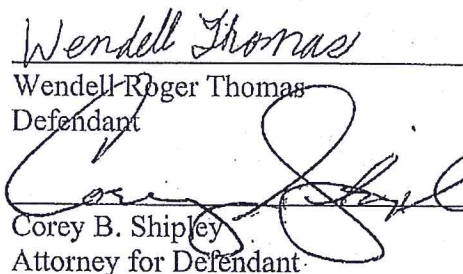 Wendell Thomas
Wendell Roger Thomas
Defendant
Corey Shipl
Corey B. Shipley
Attorney for Defendant